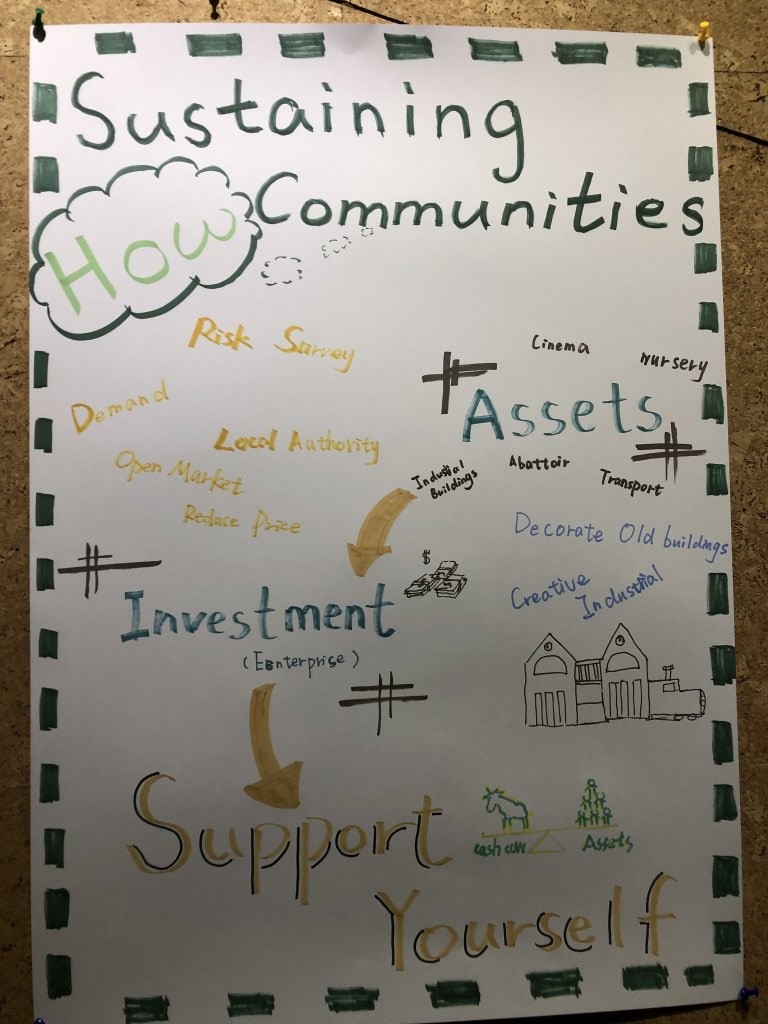 Sustaining
Communities
How
Risk Survey
Cinema
Nursery
Demand
Assets
Local Authority
Open Market
Abattoir
Industial
Buildings
Transport
Reduce Price
Decorate Old buildings
$
Creative
Industrial
Investment
(Eenterprise)
Support
cash cow
Assets
Yourself